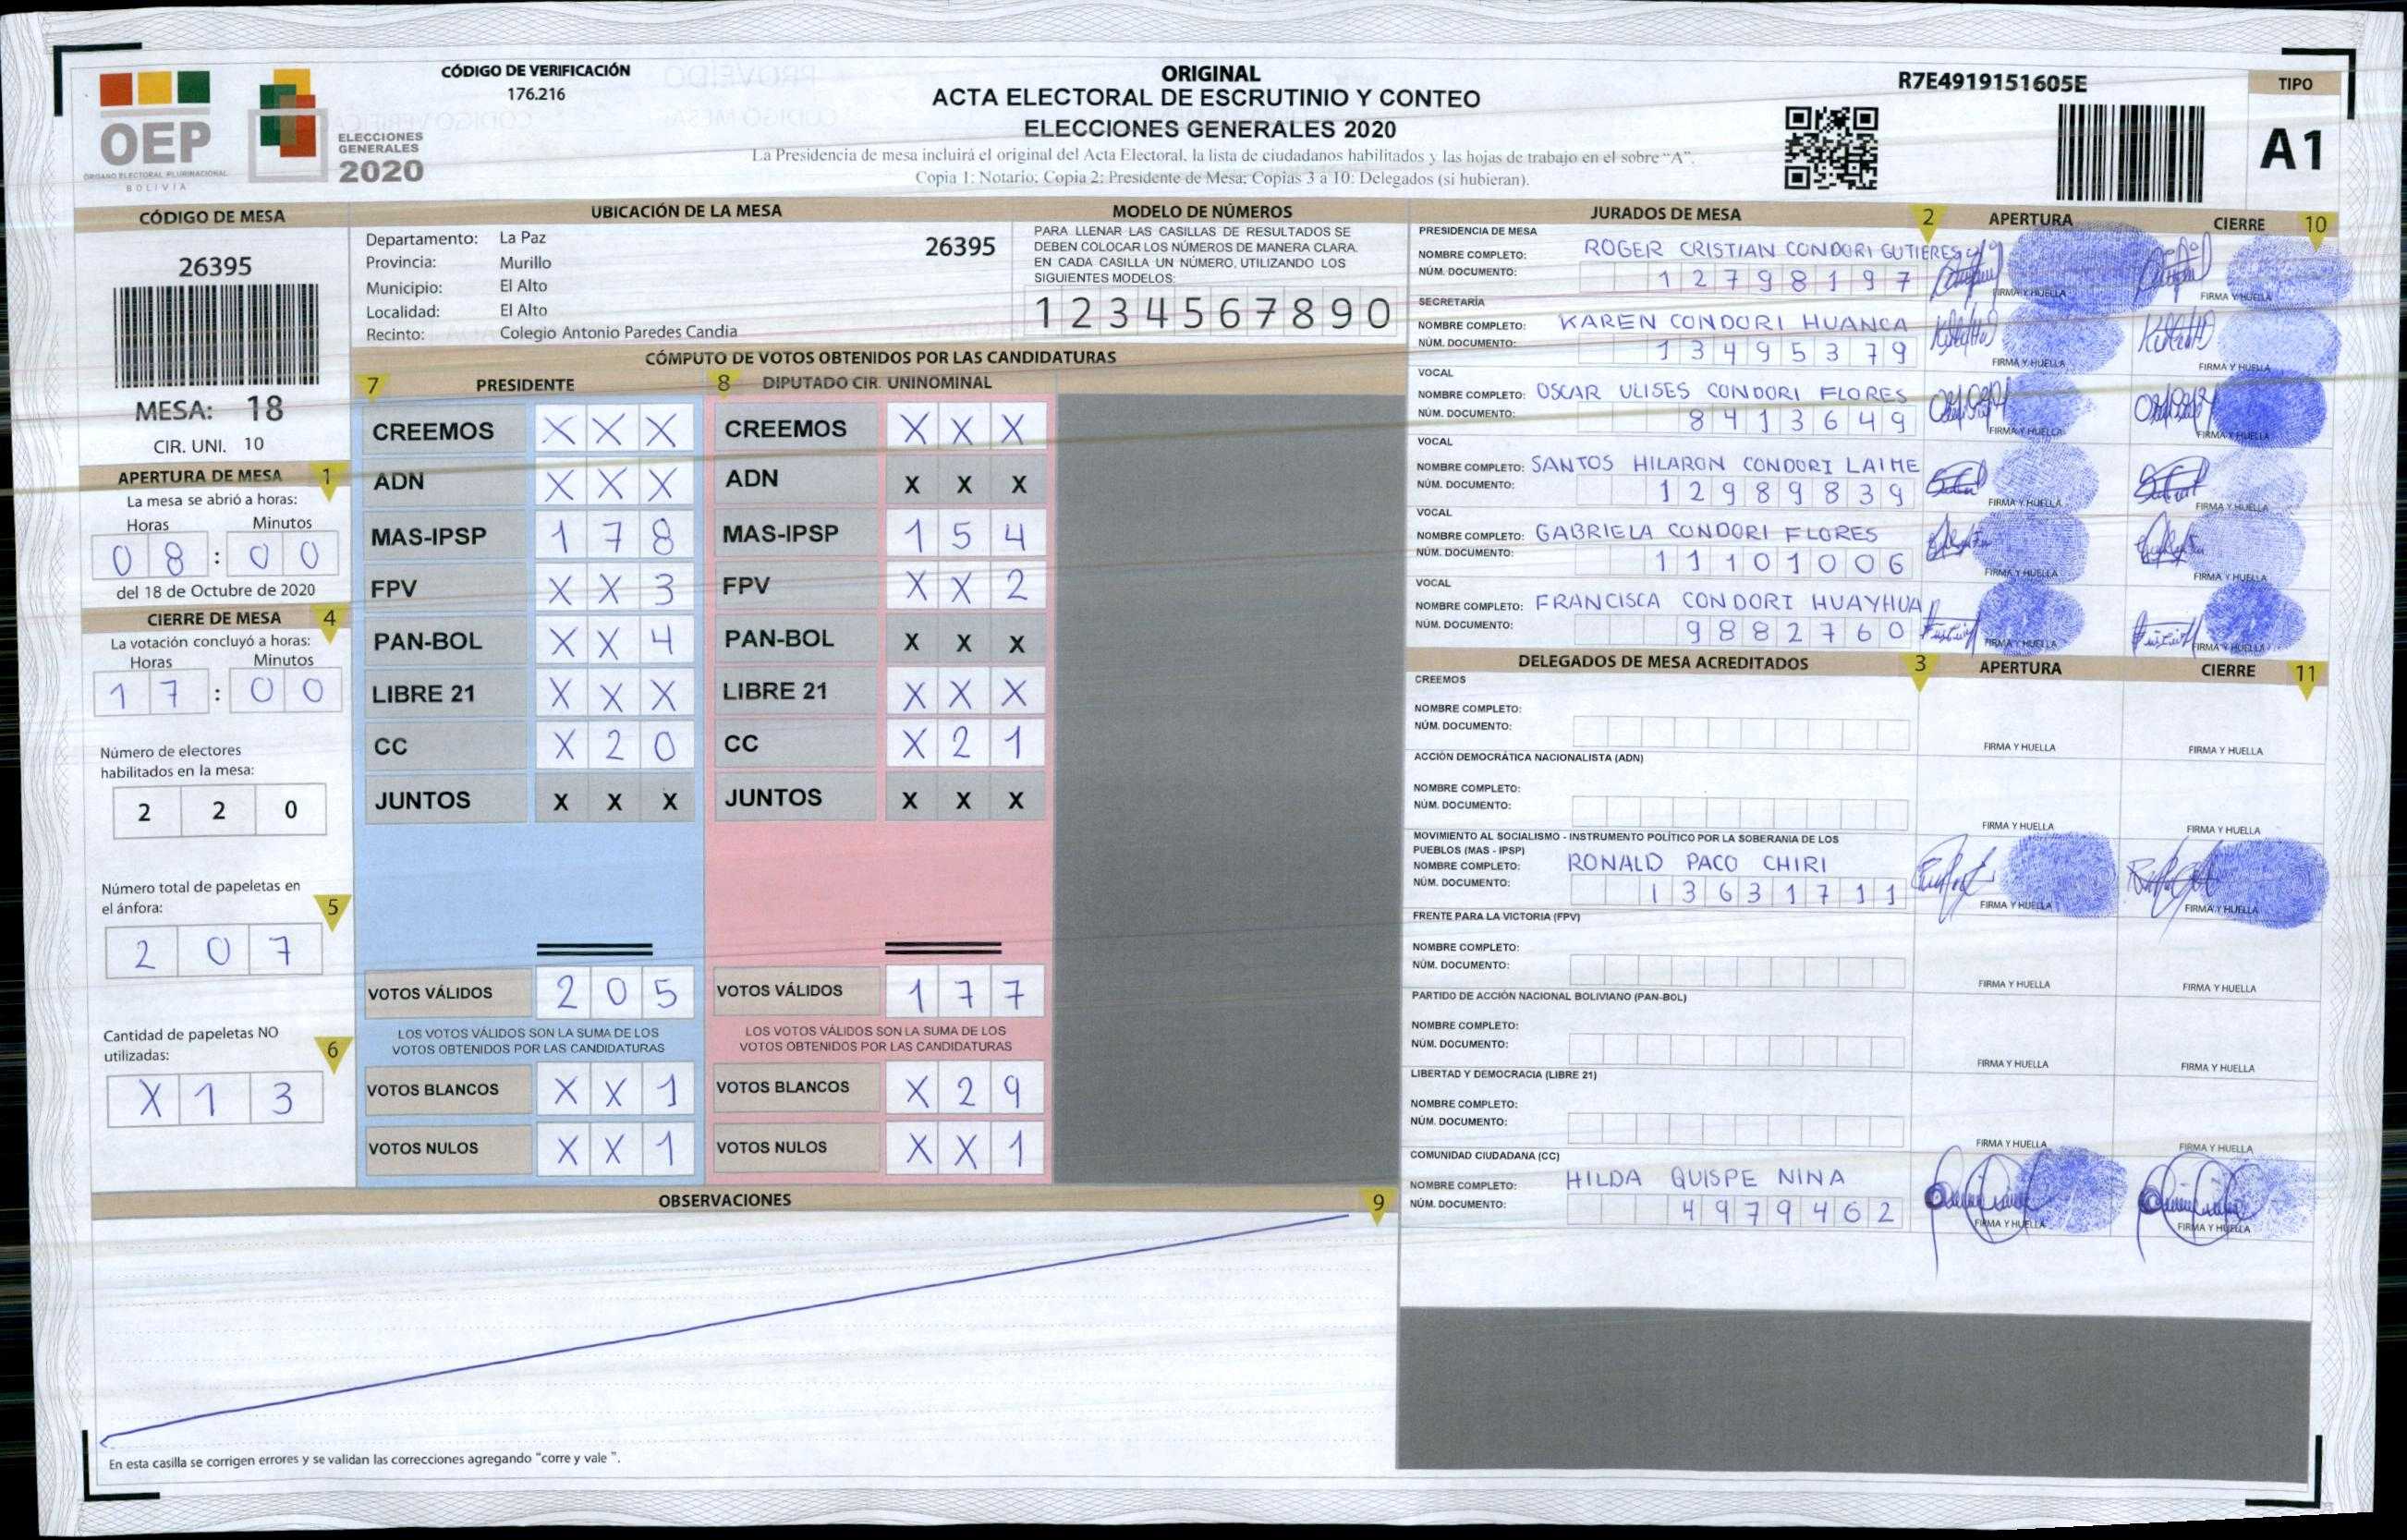 CÓDIGO DE VERIFICACIÓN
176.216
OEP
ÓRGANO ELECTORAL PLURINACIONAL
BOLIVIA
ELECCIONES
GENERALES
2020
ORIGINAL
ACTA ELECTORAL DE ESCRUTINIO Y CONTEO
ELECCIONES GENERALES 2020
La Presidencia de mesa incluirá el original del Acta Electoral, la lista de ciudadanos habilitados y las hojas de trabajo en el sobre "A".
Copia 1: Notario; Copia 2: Presidente de Mesa; Copias 3 a 10: Delegados (si hubieran).
R7E4919151605E
TIPO
A1
CÓDIGO DE MESA
26395
MESA: 18
CIR. UNI. 10
APERTURA DE MESA 1
La mesa se abrió a horas:
Horas Minutos
08 : 00
del 18 de Octubre de 2020
CIERRE DE MESA 4
La votación concluyó a horas:
Horas Minutos
17 : 00
Número de electores
habilitados en la mesa:
2 2 0
Número total de papeletas en
el ánfora: 5
2 0 7
Cantidad de papeletas NO
utilizadas: 6
X 1 3
UBICACIÓN DE LA MESA
Departamento: La Paz 26395
Provincia: Murillo
Municipio: El Alto
Localidad: El Alto
Recinto: Colegio Antonio Paredes Candia
MODELO DE NÚMEROS
PARA LLENAR LAS CASILLAS DE RESULTADOS SE
DEBEN COLOCAR LOS NÚMEROS DE MANERA CLARA.
EN CADA CASILLA UN NÚMERO, UTILIZANDO LOS
SIGUIENTES MODELOS:
1 2 3 4 5 6 7 8 9 0
CÓMPUTO DE VOTOS OBTENIDOS POR LAS CANDIDATURAS
7 PRESIDENTE 8 DIPUTADO CIR. UNINOMINAL
CREEMOS X X X CREEMOS X X X
ADN X X X ADN X X X
MAS-IPSP 1 7 8 MAS-IPSP 1 5 4
FPV X X 3 FPV X X 2
PAN-BOL X X 4 PAN-BOL X X X
LIBRE 21 X X X LIBRE 21 X X X
CC X 2 0 CC X 2 1
JUNTOS X X X JUNTOS X X X
VOTOS VÁLIDOS 2 0 5 VOTOS VÁLIDOS 1 7 7
LOS VOTOS VÁLIDOS SON LA SUMA DE LOS LOS VOTOS VÁLIDOS SON LA SUMA DE LOS
VOTOS OBTENIDOS POR LAS CANDIDATURAS VOTOS OBTENIDOS POR LAS CANDIDATURAS
VOTOS BLANCOS X X 1 VOTOS BLANCOS X 2 9
VOTOS NULOS X X 1 VOTOS NULOS X X 1
OBSERVACIONES 9
En esta casilla se corrigen errores y se validan las correcciones agregando "corre y vale ".
JURADOS DE MESA 2 APERTURA CIERRE 10
PRESIDENCIA DE MESA
NOMBRE COMPLETO: ROGER CRISTIAN CONDORI GUTIERES
NÚM. DOCUMENTO: 12798197
FIRMA Y HUELLA FIRMA Y HUELLA
SECRETARÍA
NOMBRE COMPLETO: KAREN CONDORI HUANCA
NÚM. DOCUMENTO: 13495379
FIRMA Y HUELLA FIRMA Y HUELLA
VOCAL
NOMBRE COMPLETO: OSCAR ULISES CONDORI FLORES
NÚM. DOCUMENTO: 8413649
FIRMA Y HUELLA FIRMA Y HUELLA
VOCAL
NOMBRE COMPLETO: SANTOS HILARON CONDORI LAIME
NÚM. DOCUMENTO: 12989839
FIRMA Y HUELLA FIRMA Y HUELLA
VOCAL
NOMBRE COMPLETO: GABRIELA CONDORI FLORES
NÚM. DOCUMENTO: 11101006
FIRMA Y HUELLA FIRMA Y HUELLA
VOCAL
NOMBRE COMPLETO: FRANCISCA CONDORI HUAYHUA
NÚM. DOCUMENTO: 9882760
FIRMA Y HUELLA FIRMA Y HUELLA
DELEGADOS DE MESA ACREDITADOS 3 APERTURA CIERRE 11
CREEMOS
NOMBRE COMPLETO:
NÚM. DOCUMENTO:
FIRMA Y HUELLA FIRMA Y HUELLA
ACCIÓN DEMOCRÁTICA NACIONALISTA (ADN)
NOMBRE COMPLETO:
NÚM. DOCUMENTO:
FIRMA Y HUELLA FIRMA Y HUELLA
MOVIMIENTO AL SOCIALISMO - INSTRUMENTO POLÍTICO POR LA SOBERANIA DE LOS
PUEBLOS (MAS - IPSP)
NOMBRE COMPLETO: RONALD PACO CHIRI
NÚM. DOCUMENTO: 13631711
FIRMA Y HUELLA FIRMA Y HUELLA
FRENTE PARA LA VICTORIA (FPV)
NOMBRE COMPLETO:
NÚM. DOCUMENTO:
FIRMA Y HUELLA FIRMA Y HUELLA
PARTIDO DE ACCIÓN NACIONAL BOLIVIANO (PAN-BOL)
NOMBRE COMPLETO:
NÚM. DOCUMENTO:
FIRMA Y HUELLA FIRMA Y HUELLA
LIBERTAD Y DEMOCRACIA (LIBRE 21)
NOMBRE COMPLETO:
NÚM. DOCUMENTO:
FIRMA Y HUELLA FIRMA Y HUELLA
COMUNIDAD CIUDADANA (CC)
NOMBRE COMPLETO: HILDA QUISPE NINA
NÚM. DOCUMENTO: 4979462
FIRMA Y HUELLA FIRMA Y HUELLA